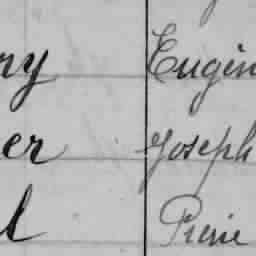 ry Eugèn
er Joseph
l Pierre